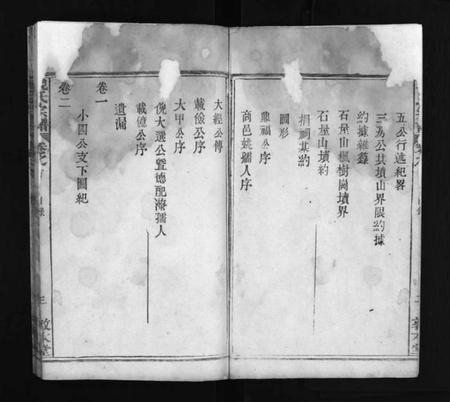 五公行述紀畧
三爲公共墳山界限約據
約據雜錄
石屋山楓樹崗墳界
石屋山墳約
捐祠基約
圖形
鼎福公序
商邑姚孺人序
大經公傳
載儉公序
大甲公序
俛大選公暨德配滌孺人
載億公序
遺漏
卷一
小四公支下圖紀
卷二
氏宗譜
敦本堂